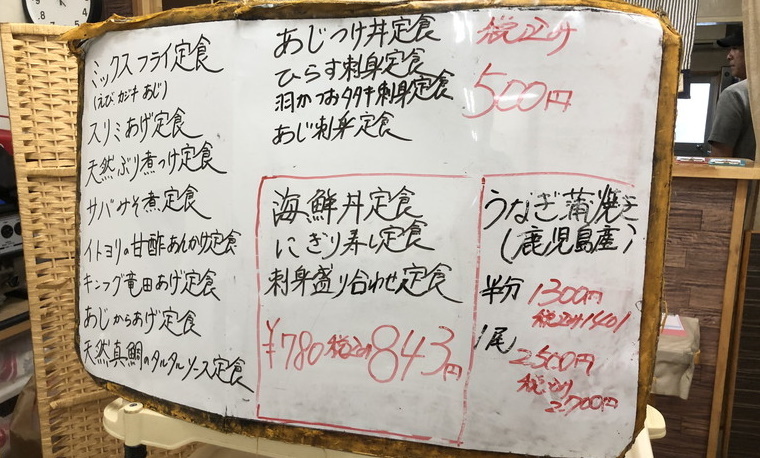 ミックスフライ定食
(えび カジキ あじ)
スリミあげ定食
天然ぶり煮つけ定食
サバみそ煮定食
イトヨリの甘酢あんかけ定食
キング竜田あげ定食
あじからあげ定食
天然真鯛のタルタルソース定食
あじつけ丼定食
ひらす刺身定食
羽かつおタタキ刺身定食
あじ刺身定食
税込み
500円
海鮮丼定食
にぎり寿し定食
刺身盛り合わせ定食
¥780 税込み 843円
うなぎ蒲焼き
(鹿児島産)
半分 1300円
税込み1401
1尾 2500円
税込み
2700円